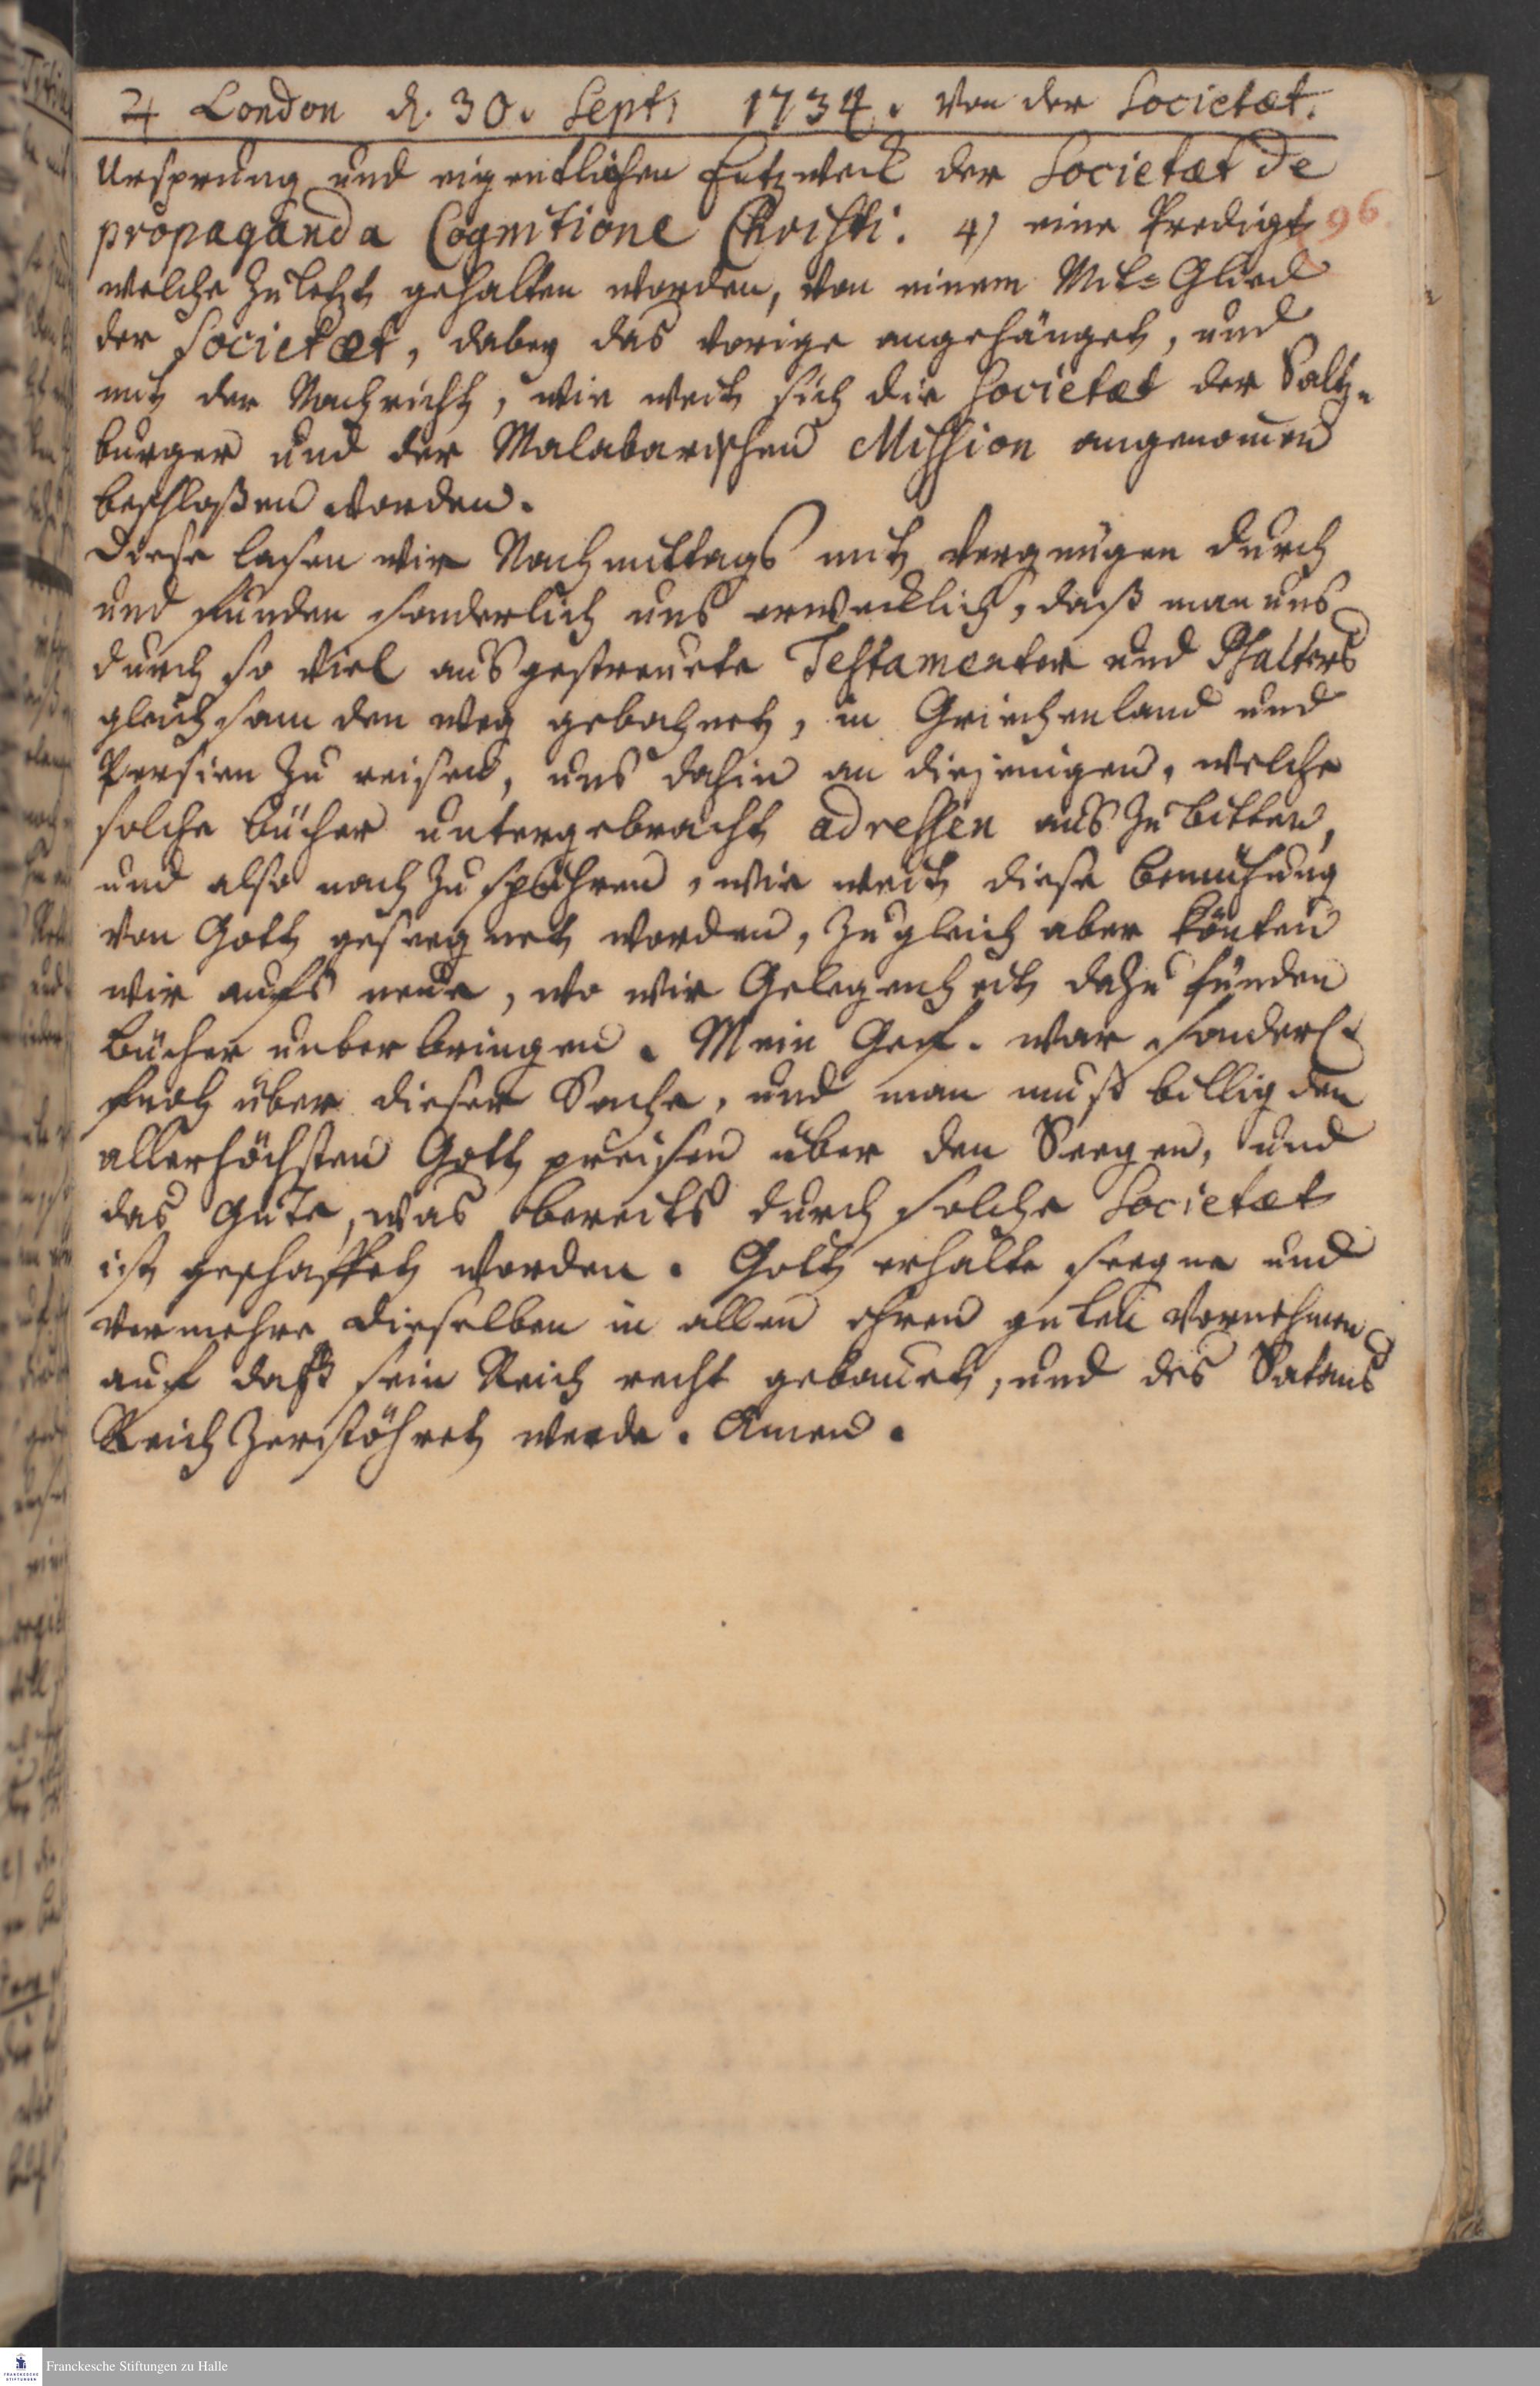 ♃ London d. 30. Sept. 1734. Von der Societæt.
Ursprung und eigentlichen Entzweck der Societæt de
propaganda Cognitione Christi. 4) eine Predigt 96.
welche zuletzt gehalten worden, von einem Mit-Glied
der Societæt, dabey das vorige angehänget, und
mit der Nachricht, wie weit sich die Societæt der Saltz-
burger und der Malabarischen Mission angenomen
beschloßen worden.
Diese lasen wir Nachmittags mit Vergnügen durch
und funden sonderlich uns erwecklich, daß man uns
durch so viel ausgestreuete Testamenter und Psalters
gleichsam den Weg gebahnet, in Griechenland und
Persien zu reisen, uns dahin an diejenigen, welche
solche Bücher untergebracht adressen auszubitten,
und also nach zu spühren, wie weit diese Bemühung
von Gott geseegnet worden, zugleich aber könten
wir aufs neue, wo wir Gelegenheit dazu fünden
Bücher unterbringen. Mein Gef. war sonderl.
froh über dieser Sache, und man muß billig den
allerhöchsten Gott preisen über den Seegen, und
das Gute, was bereits durch solche Societæt
ist geschaffet worden. Gott erhalte seegne und
vermehre dieselben in allen ihren guten Vornehmen
auf daß sein Reich recht gebauet, und des Satans
Reich zerstöhret werde. Amen.
Franckesche Stiftungen zu Halle